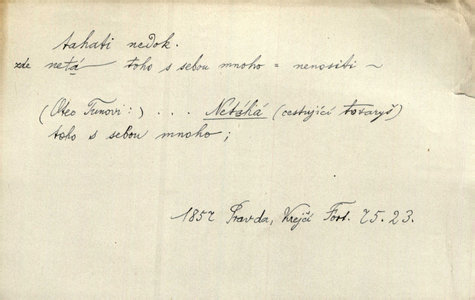 tahati nedok.
zde netá — toho s sebou mnoho = nenositi ~
(Otec Tunovi:) . . . Netáhá (cestující tovaryš)
toho s sebou mnoho;
1857 Pravda, Krejčí Fort. 75.23.